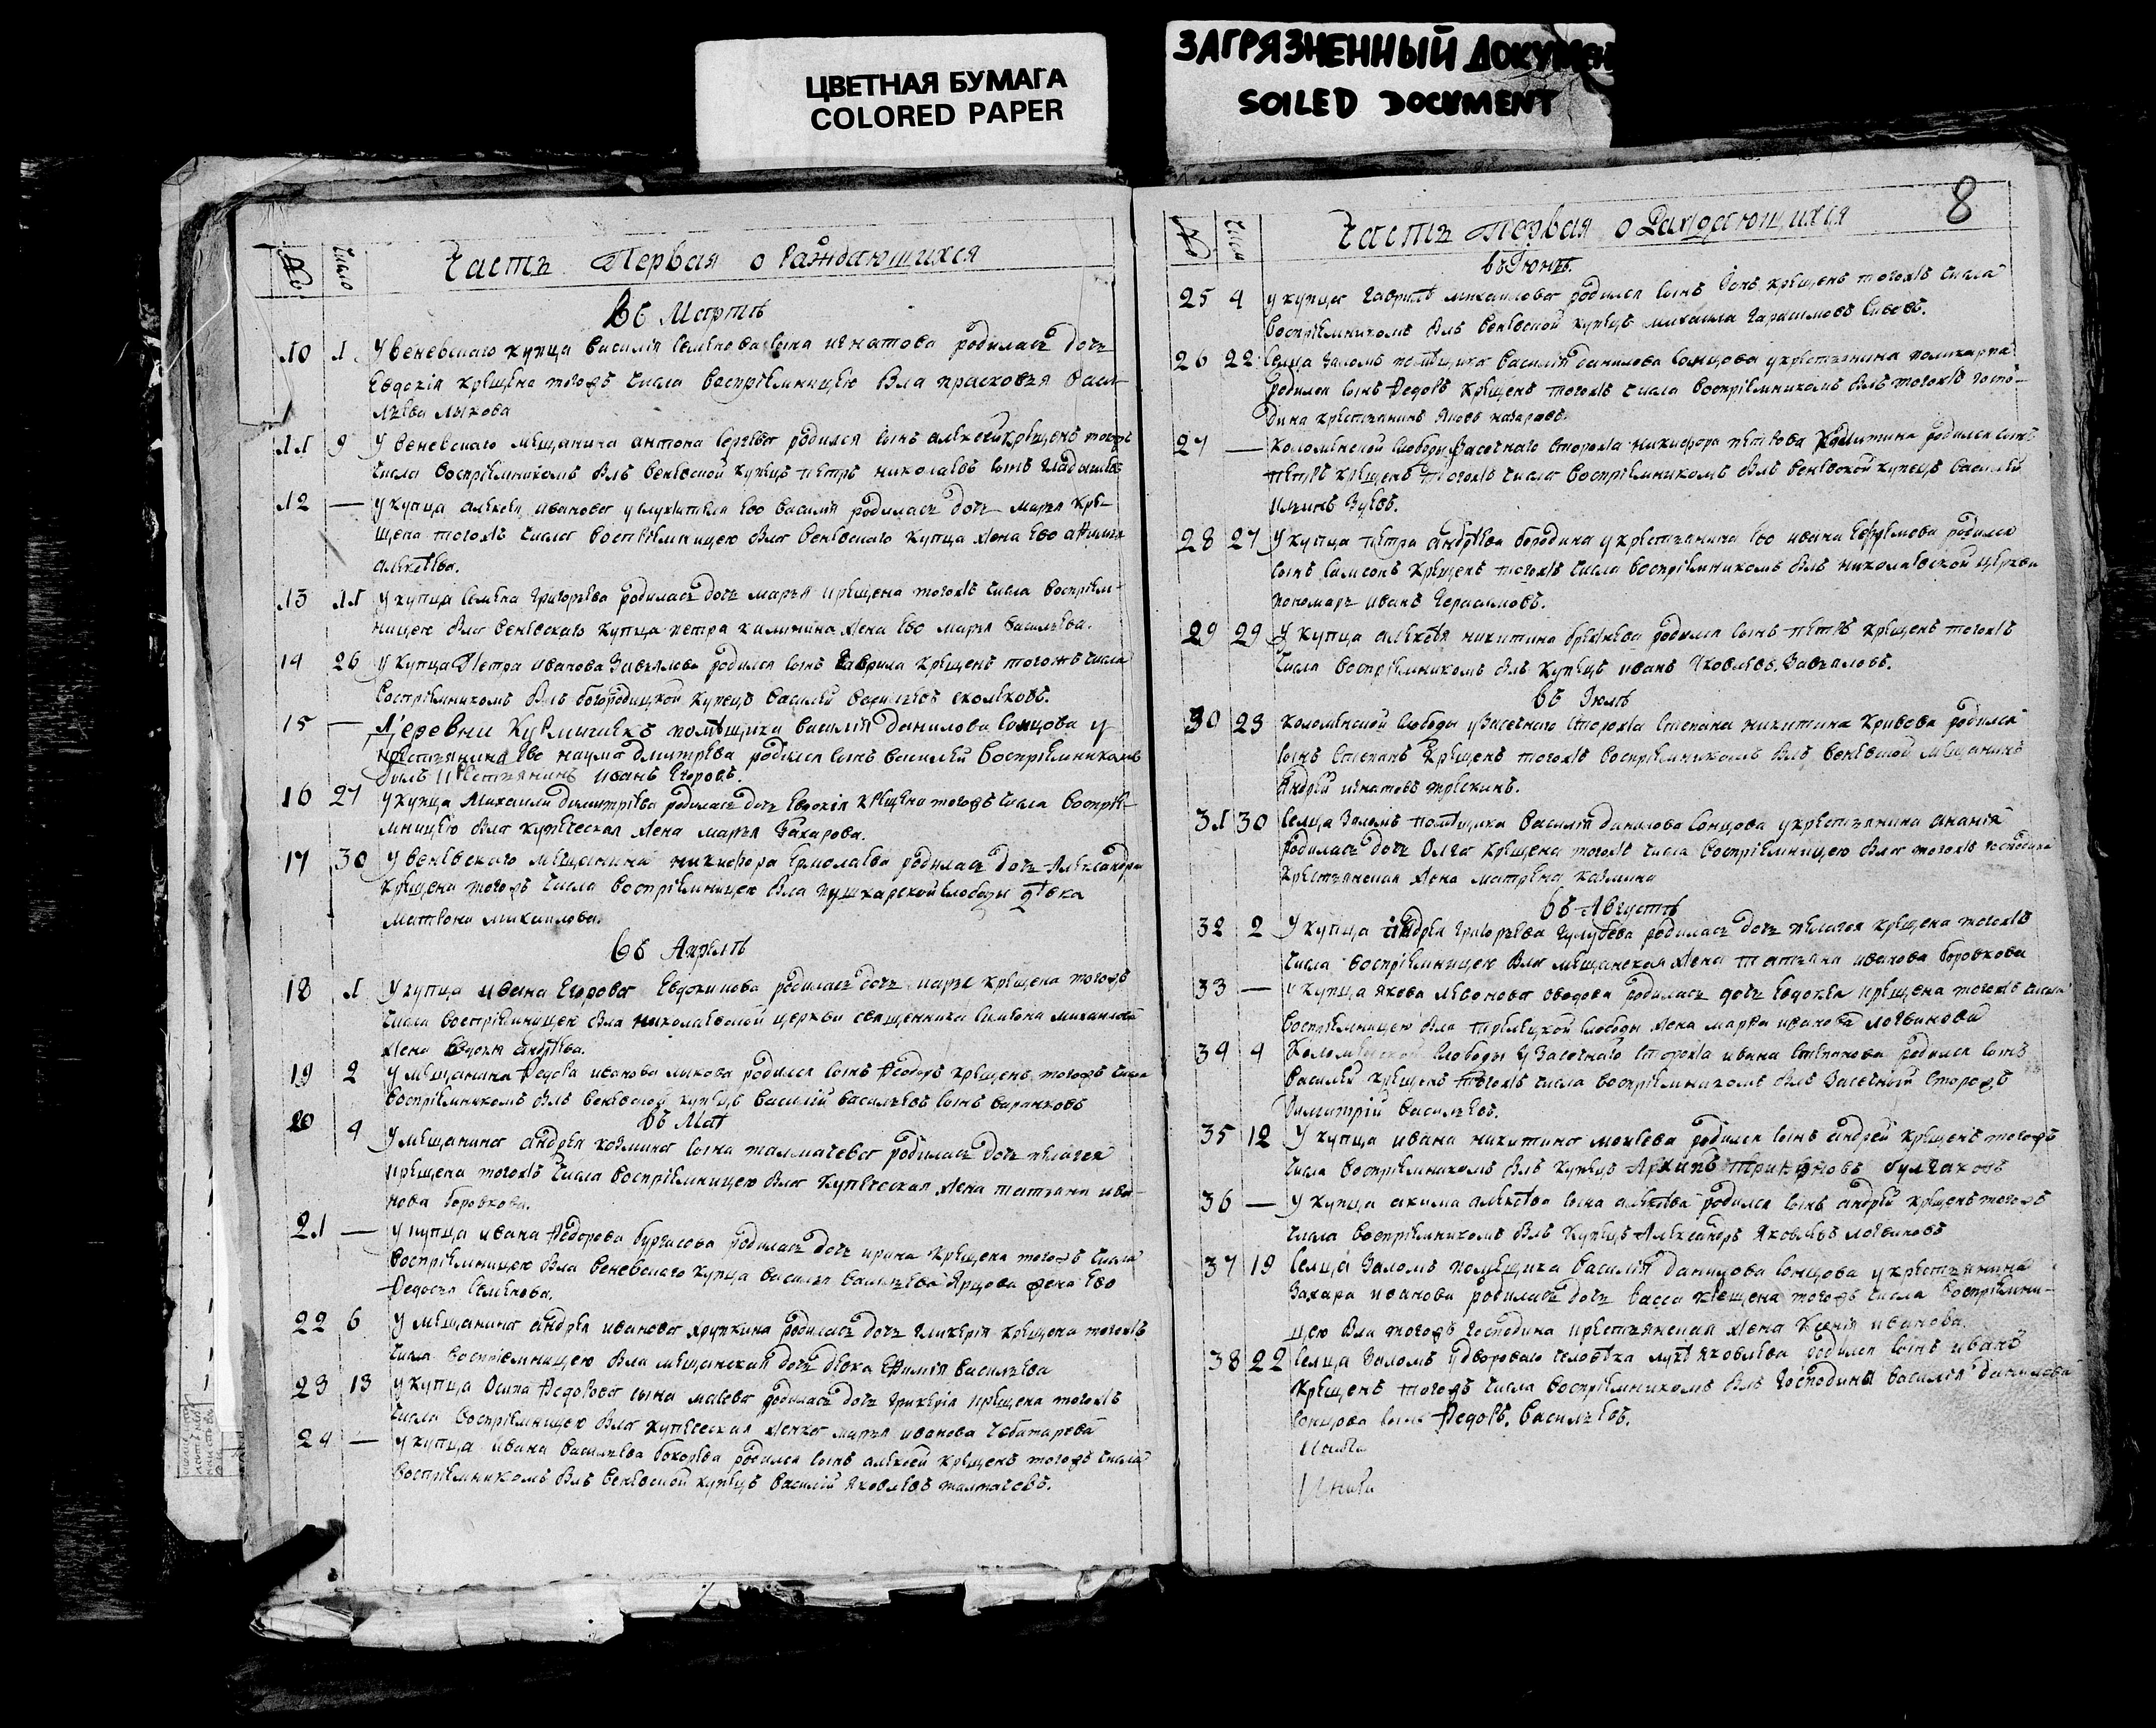 ЦВЕТНАЯ БУМАГА
COLORED PAPER
ЗАГРЯЗНЕННЫЙ ДОКУМЕН
SOILED DOCUMENT
8
№ Число Часть Первая о Раждающихся
Въ Мартѣ
10 1 У веневскаго купца василія семенова сына игнатова родилась дочь
Евдокія крещена тогожъ числа воспріемницею была прасковья васи-
льева лыкова
11 9 У веневскаго мещанина антона сергеева родился сынъ алексей крещенъ тогожъ
числа воспріемникомъ былъ веневской купецъ петръ николаевъ сынъ гладышевъ
12 — у купца алексея иванова у служителя ево василія родилась дочь марья кре-
щена тогожъ числа воспріемницею была веневскаго купца жена ево
алексеева.
13 11 у купца семена григорьева родилась дочь марья крещена тогожъ числа воспріем-
ницею была веневскаго купца петра калинина жена ево марья васильева.
14 26 у купца Петра иванова Завьялова родился сынъ гаврила крещенъ тогожъ числа
воспріемникомъ былъ богородицкой купецъ василей васильевъ
15 — Деревни помѣщика василія данилова сонцова у
крестьянина ево наума дмитрева родился сынъ василей воспріемникомъ
былъ крестьянинъ иванъ Егоровъ.
16 27 у купца Михаилы димитріева родилась дочь Евдокія крещена тогожъ числа воспріе-
мницею была купеческая жена марья Захарова.
17 30 у веневскаго мещанина никифора Ермолаева родилась дочь Александра
крещена тогожъ числа воспріемницею была пушкарской слободы дѣвка
матрона михаилова.
въ Апрѣлѣ
18 1 У купца ивана Егорова Евдокимова родилась дочь марья крещена тогожъ
числа воспріемницею была николаевской церкви священника симеона михаилова
жена андреева.
19 2 у мещанина Федора иванова лыкова родился сынъ Феодоръ крещенъ тогожъ числа
воспріемникомъ былъ веневской купецъ василій васильевъ сынъ
въ Маѣ
20 4 У мещанина андрея козмина сына талмачева родилась дочь пелагея
крещена тогожъ числа воспріемницею была купеческая жена татьяна ива-
нова боровкова.
21 — у купца ивана Федорова бургасова родилась дочь ирина крещена тогожъ числа
воспріемницею была веневскаго купца василья васильева жена ево
Федосья семенова.
22 6 У мещанина андрея иванова родилась дочь гликерія крещена тогожъ
числа воспріемницею была мещанская дочь девка васильева
23 13 у купца Осипа Федорова сына родилась дочь крещена тогожъ
числа воспріемницею была купеческая женка марья иванова чеботарева
24 — у купца ивана васильева родился сынъ алексей крещенъ тогожъ числа
воспріемникомъ былъ веневской купецъ василій яковлевъ талмачовъ.
№ Число Часть первая о Раждающихся
въ Іюнѣ.
25 4 у купца гаврилы михаилова родился сынъ крещенъ тогожъ числа
воспріемникомъ былъ веневской купецъ михаила гарасимовъ
26 22 Сельца Заломъ помѣщика василія данилова сонцова у крестьянина поликарпа
родился сынъ Федоръ крещенъ тогожъ числа воспріемникомъ былъ тогожъ госпо-
дина крестьянинъ яковъ назаровъ.
27 — коломенской слободы Засечнаго сторожа никифора петрова родился сынъ
петръ крещенъ тогожъ числа воспріемникомъ былъ веневской купецъ василей
ильинъ Зуевъ.
28 27 У купца петра андреева бородина у крестьянина ево ивана Ефремова родился
сынъ самсонъ крещенъ тогожъ числа воспріемникомъ былъ николаевской церкви
пономарь иванъ герасимовъ.
29 29 У купца алексея никитина родился сынъ петръ крещенъ тогожъ
числа воспріемникомъ былъ купецъ иванъ яковлевъ Завьяловъ.
въ Іюлѣ
30 23 коломенской слободы у Засечнаго сторожа степана никитина кривова родился
сынъ степанъ крещенъ тогожъ воспріемникомъ былъ веневской мещанинъ
андрей игнатовъ
31 30 Сельца Заломъ помѣщика василія данилова сонцова у крестьянина ананія
родилась дочь Олга крещена тогожъ числа воспріемницею была тогожъ господина
крестьянская жена матрена казмина
въ Августѣ
32 2 У купца андрея григорьева родилась дочь пелагея крещена тогожъ
числа воспріемницею была мещанская жена татьяна иванова боровкова
33 — у купца якова леонова оводова родилась дочь Евдокея крещена тогожъ числа
воспріемницею была слободы жена марфа иванова логвинова
34 4 коломенской слободы у Засечнаго сторожа ивана степанова родился сынъ
василей крещенъ тогожъ числа воспріемникомъ былъ Засечный сторожъ
димитрій васильевъ.
35 12 У купца ивана никитина родился сынъ андрей крещенъ тогожъ
числа воспріемникомъ былъ купецъ Архипъ булгаковъ
36 — У купца акима алексеева сына родился сынъ андрей крещенъ тогожъ
числа воспріемникомъ былъ купецъ Александръ яковлевъ логвиновъ
37 19 Сельца Заломъ помещика василія данилова сонцова у крестьянина
Захара иванова родилась дочь васса крещена тогожъ числа воспріемни-
цею была тогожъ господина крестьянская жена ксенія иванова.
38 22 Сельца Заломъ у двороваго человѣка яковлева родился сынъ иванъ
крещенъ тогожъ числа воспріемникомъ былъ господина василія данилова
сонцова сынъ Федоръ васильевъ.